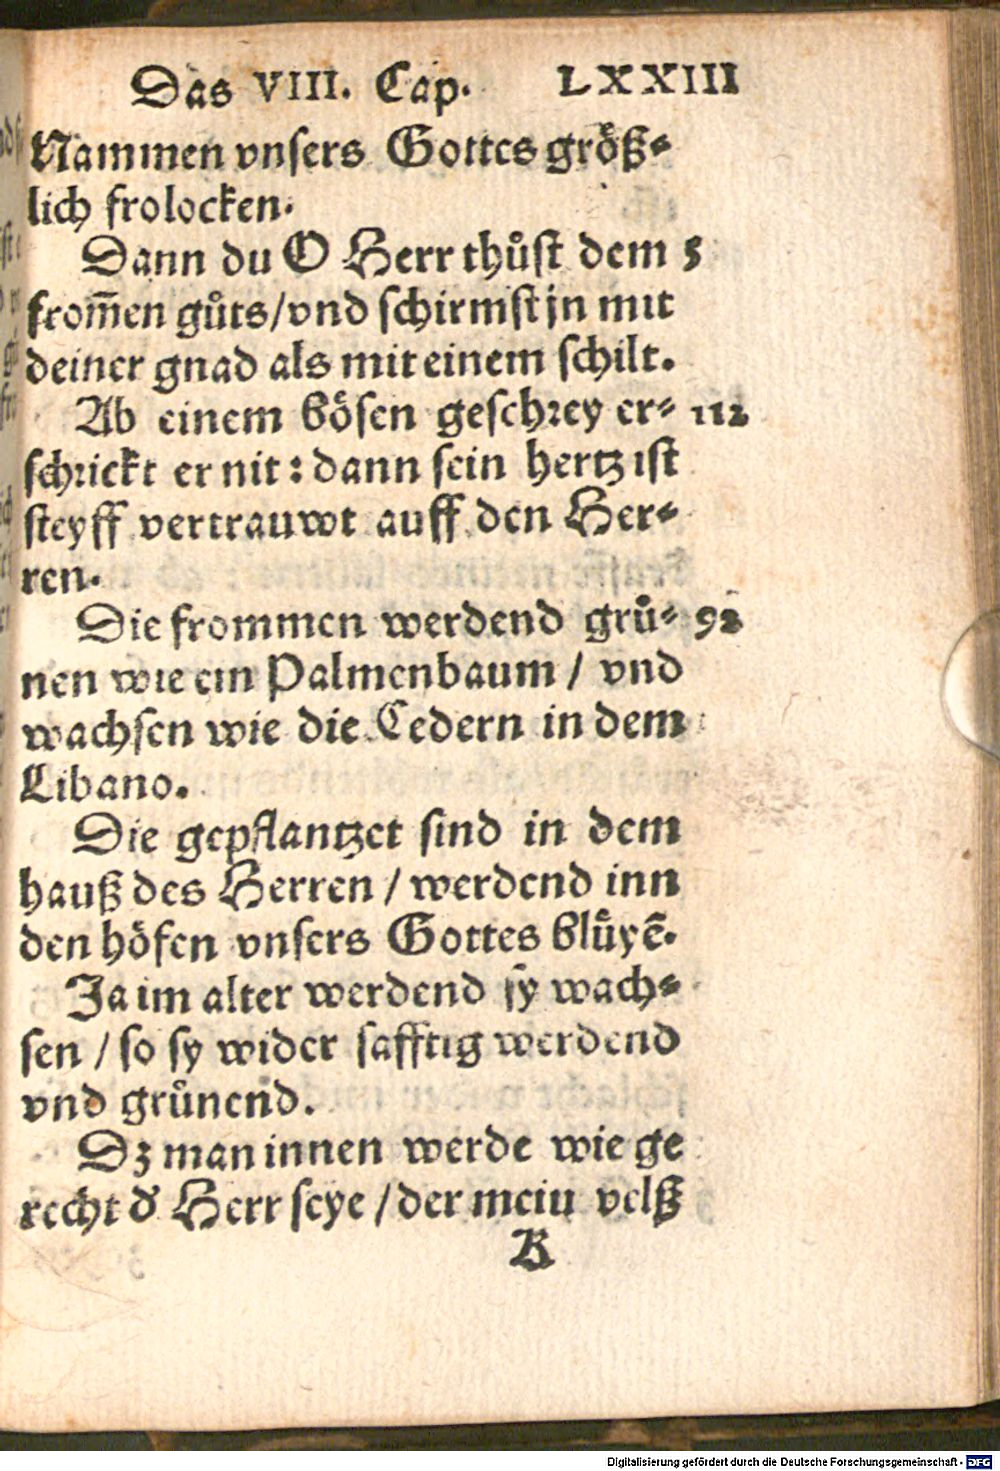 Das VIII. Cap. LXXIII
Nammen vnsers Gottes größ⸗
lich frolocken.
Dann du O Herr thuͦst dem 5
from̃en guͦts/vnd schirmst jn mit
deiner gnad als mit einem schilt.
Ab einem bösen geschrey er⸗ 112
schrickt er nit: dann sein hertz ist
steyff vertrauwt auff den Her⸗
ren.
Die frommen werdend gruͤ⸗ 92
nen wie ein Palmenbaum / vnd
wachsen wie die Cedern in dem
Libano.
Die gepflantzet sind in dem
hauß des Herren / werdend inn
den höfen vnsers Gottes bluͤyē.
Ja im alter werdend sy wach⸗
sen / so sy wider safftig werdend
vnd gruͤnend.
Dz man innen werde wie ge
recht d' Herr seye / der mein velß
K
Digitalisierung gefördert durch die Deutsche Forschungsgemeinschaft - DFG